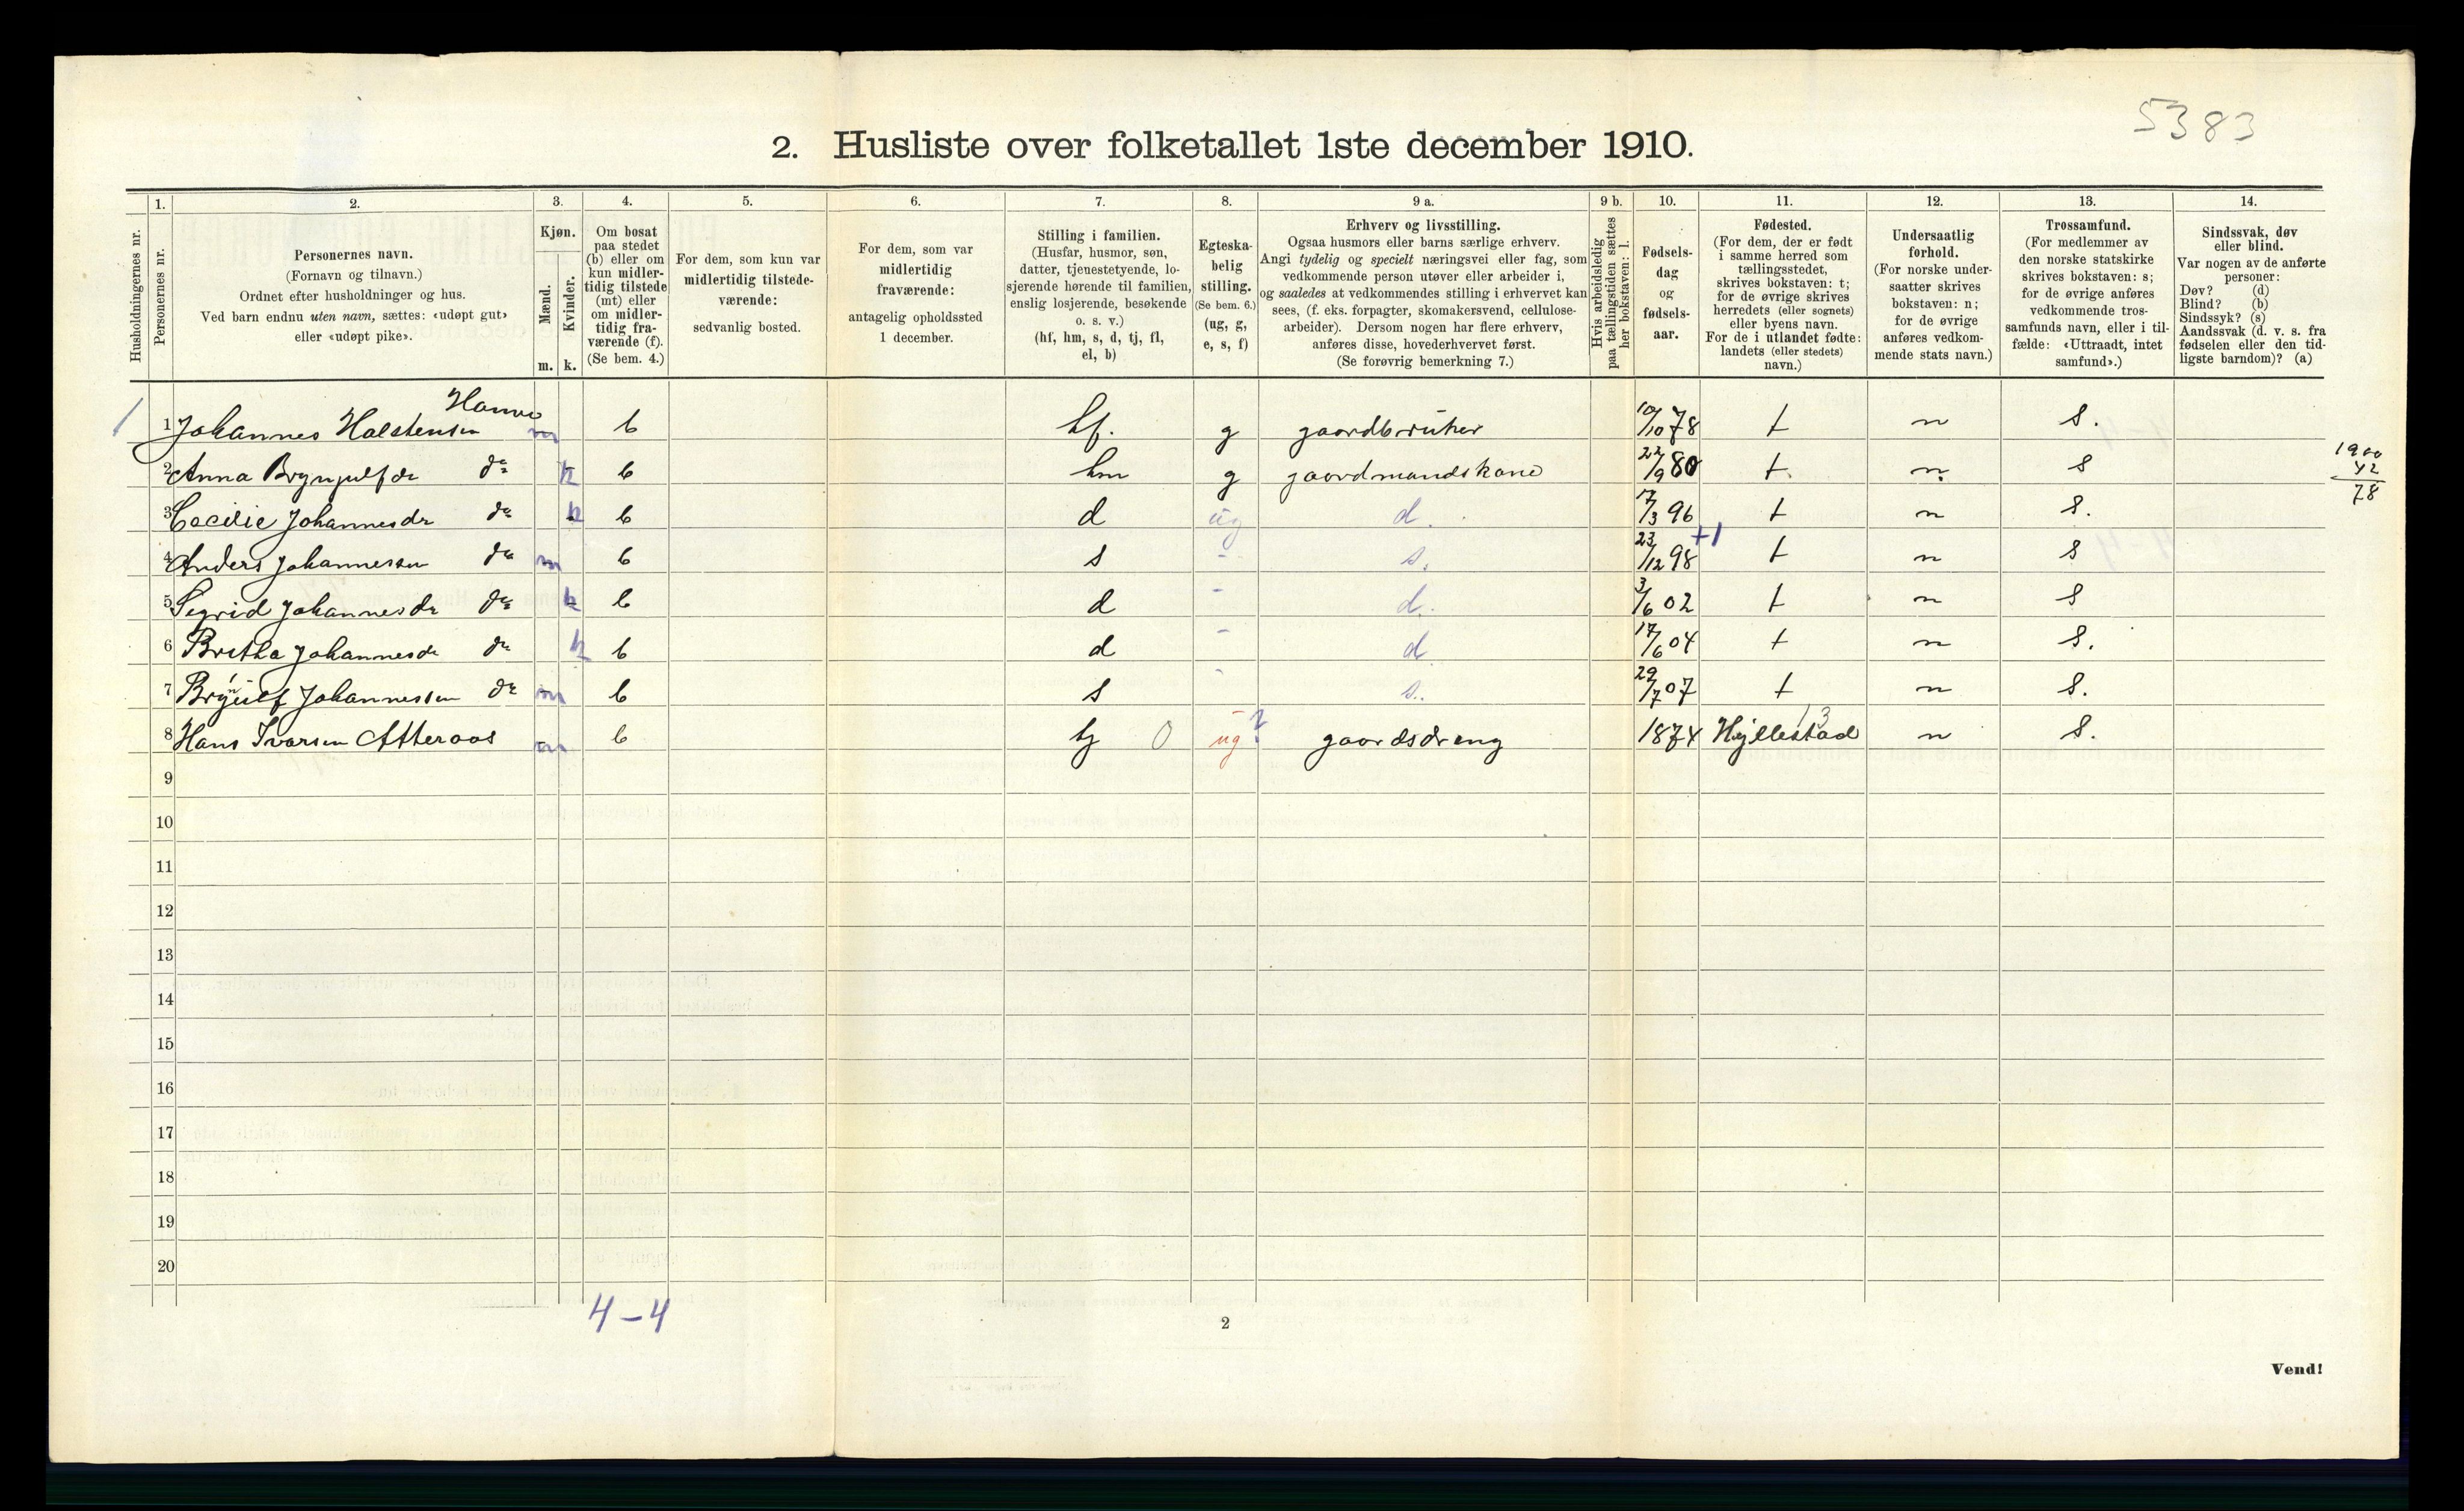 5383
2. Husliste over folketallet 1ste december 1910.
Husholdningernes nr.
1.
Personernes nr.
2.
Personernes navn.
(Fornavn og tilnavn.)
Ordnet efter husholdninger og hus.
Ved barn endnu uten navn, sættes: «udøpt gut»
eller «udøpt pike».
3.
Kjøn.
Mænd.
Kvinder.
m. k.
4.
Om bosat
paa stedet
(b) eller om
kun midler-
tidig tilstede
(mt) eller
om midler-
tidig fra-
værende (f).
(Se bem. 4.)
5.
For dem, som kun var
midlertidig tilstede-
værende:
sedvanlig bosted.
6.
For dem, som var
midlertidig
fraværende:
antagelig opholdssted
1 december.
7.
Stilling i familien.
(Husfar, husmor, søn,
datter, tjenestetyende, lo-
sjerende hørende til familien,
enslig losjerende, besøkende
o. s. v.)
(hf, hm, s, d, tj, fl,
el, b)
8.
Egteska-
belig
stilling.
(Se bem. 6.)
(ug, g,
e, s, f)
9 a.
Erhverv og livsstilling.
Ogsaa husmors eller barns særlige erhverv.
Angi tydelig og specielt næringsvei eller fag, som
vedkommende person utøver eller arbeider i,
og saaledes at vedkommendes stilling i erhvervet kan
sees, (f. eks. forpagter, skomakersvend, cellulose-
arbeider). Dersom nogen har flere erhverv,
anføres disse, hovederhvervet først.
(Se forøvrig bemerkning 7.)
9 b.
Hvis arbeidsledig
paa tællingstiden sættes
her bokstaven: l.
10.
Fødsels-
dag
og
fødsels-
aar.
11.
Fødested.
(For dem, der er født
i samme herred som
tællingsstedet,
skrives bokstaven: t;
for de øvrige skrives
herredets (eller sognets)
eller byens navn.
For de i utlandet fødte:
landets (eller stedets)
navn.)
12.
Undersaatlig
forhold.
(For norske under-
saatter skrives
bokstaven: n;
for de øvrige
anføres vedkom-
mende stats navn.)
13.
Trossamfund.
(For medlemmer av
den norske statskirke
skrives bokstaven: s;
for de øvrige anføres
vedkommende tros-
samfunds navn, eller i til-
fælde: «Uttraadt, intet
samfund».)
14.
Sindssvak, døv
eller blind.
Var nogen av de anførte
personer:
Døv? (d)
Blind? (b)
Sindssyk? (s)
Aandssvak (d. v. s. fra
fødselen eller den tid-
ligste barndom)? (a)
1 1 Johannes Halstensen m b hf. g gaardbruker 10/10 78 t n S.
2 Anna Brynjulfdr do k b hm g gaardmandskone 22/9 80 t. n. S
1900
42
78
3 Cecilie Johannesdr do k b d ug d. 17/3 96 t n S.
4 Anders Johannessen do m b s - s. 23/12 98 +1 t n S
5 Sigrid Johannesdr do k b d - d. 3/6 02 t n S
6 Brithe Johannesdr do k b d - d 17/6 04 t n S.
7 Brynulf Johannessen do m b s - s. 29/7 07 t n S.
8 Hans Ivarsen Atteraas m b tj 0 ug ? gaardsdreng 1874 Hyllestad 13 n S.
9
10
11
12
13
14
15
16
17
18
19
20
4-4
2
Vend!